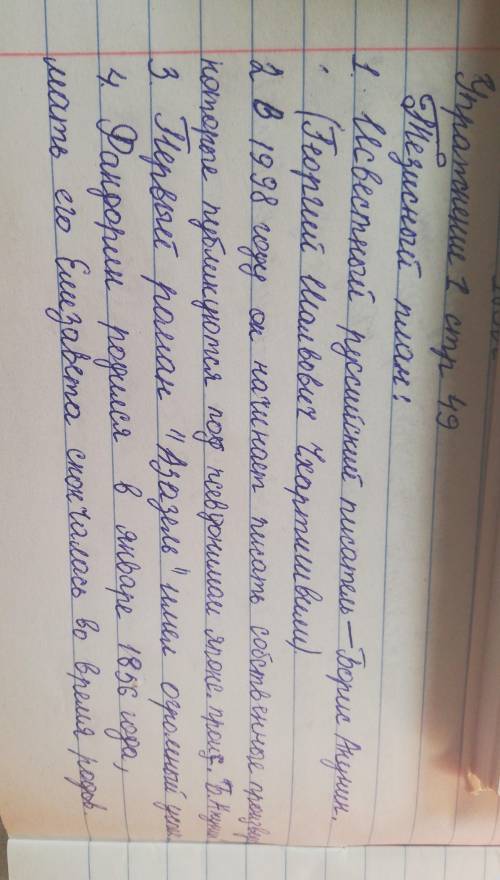 Упражнение 1 стр 49
Тезисный план:
1. Исвестной русийский писатель – Борис Акунин.
(Георгий Шалвович Чхартишвили)
2 В 1998 году он начинает писать собственное произве
которые публикуются под псевдонимом японс произ. Б Акунин
3. Первый роман "Азазель" имел огромный успе
4. Фандорин родился в январе 1856 года,
мать его Елизавета скончалась во время родов.